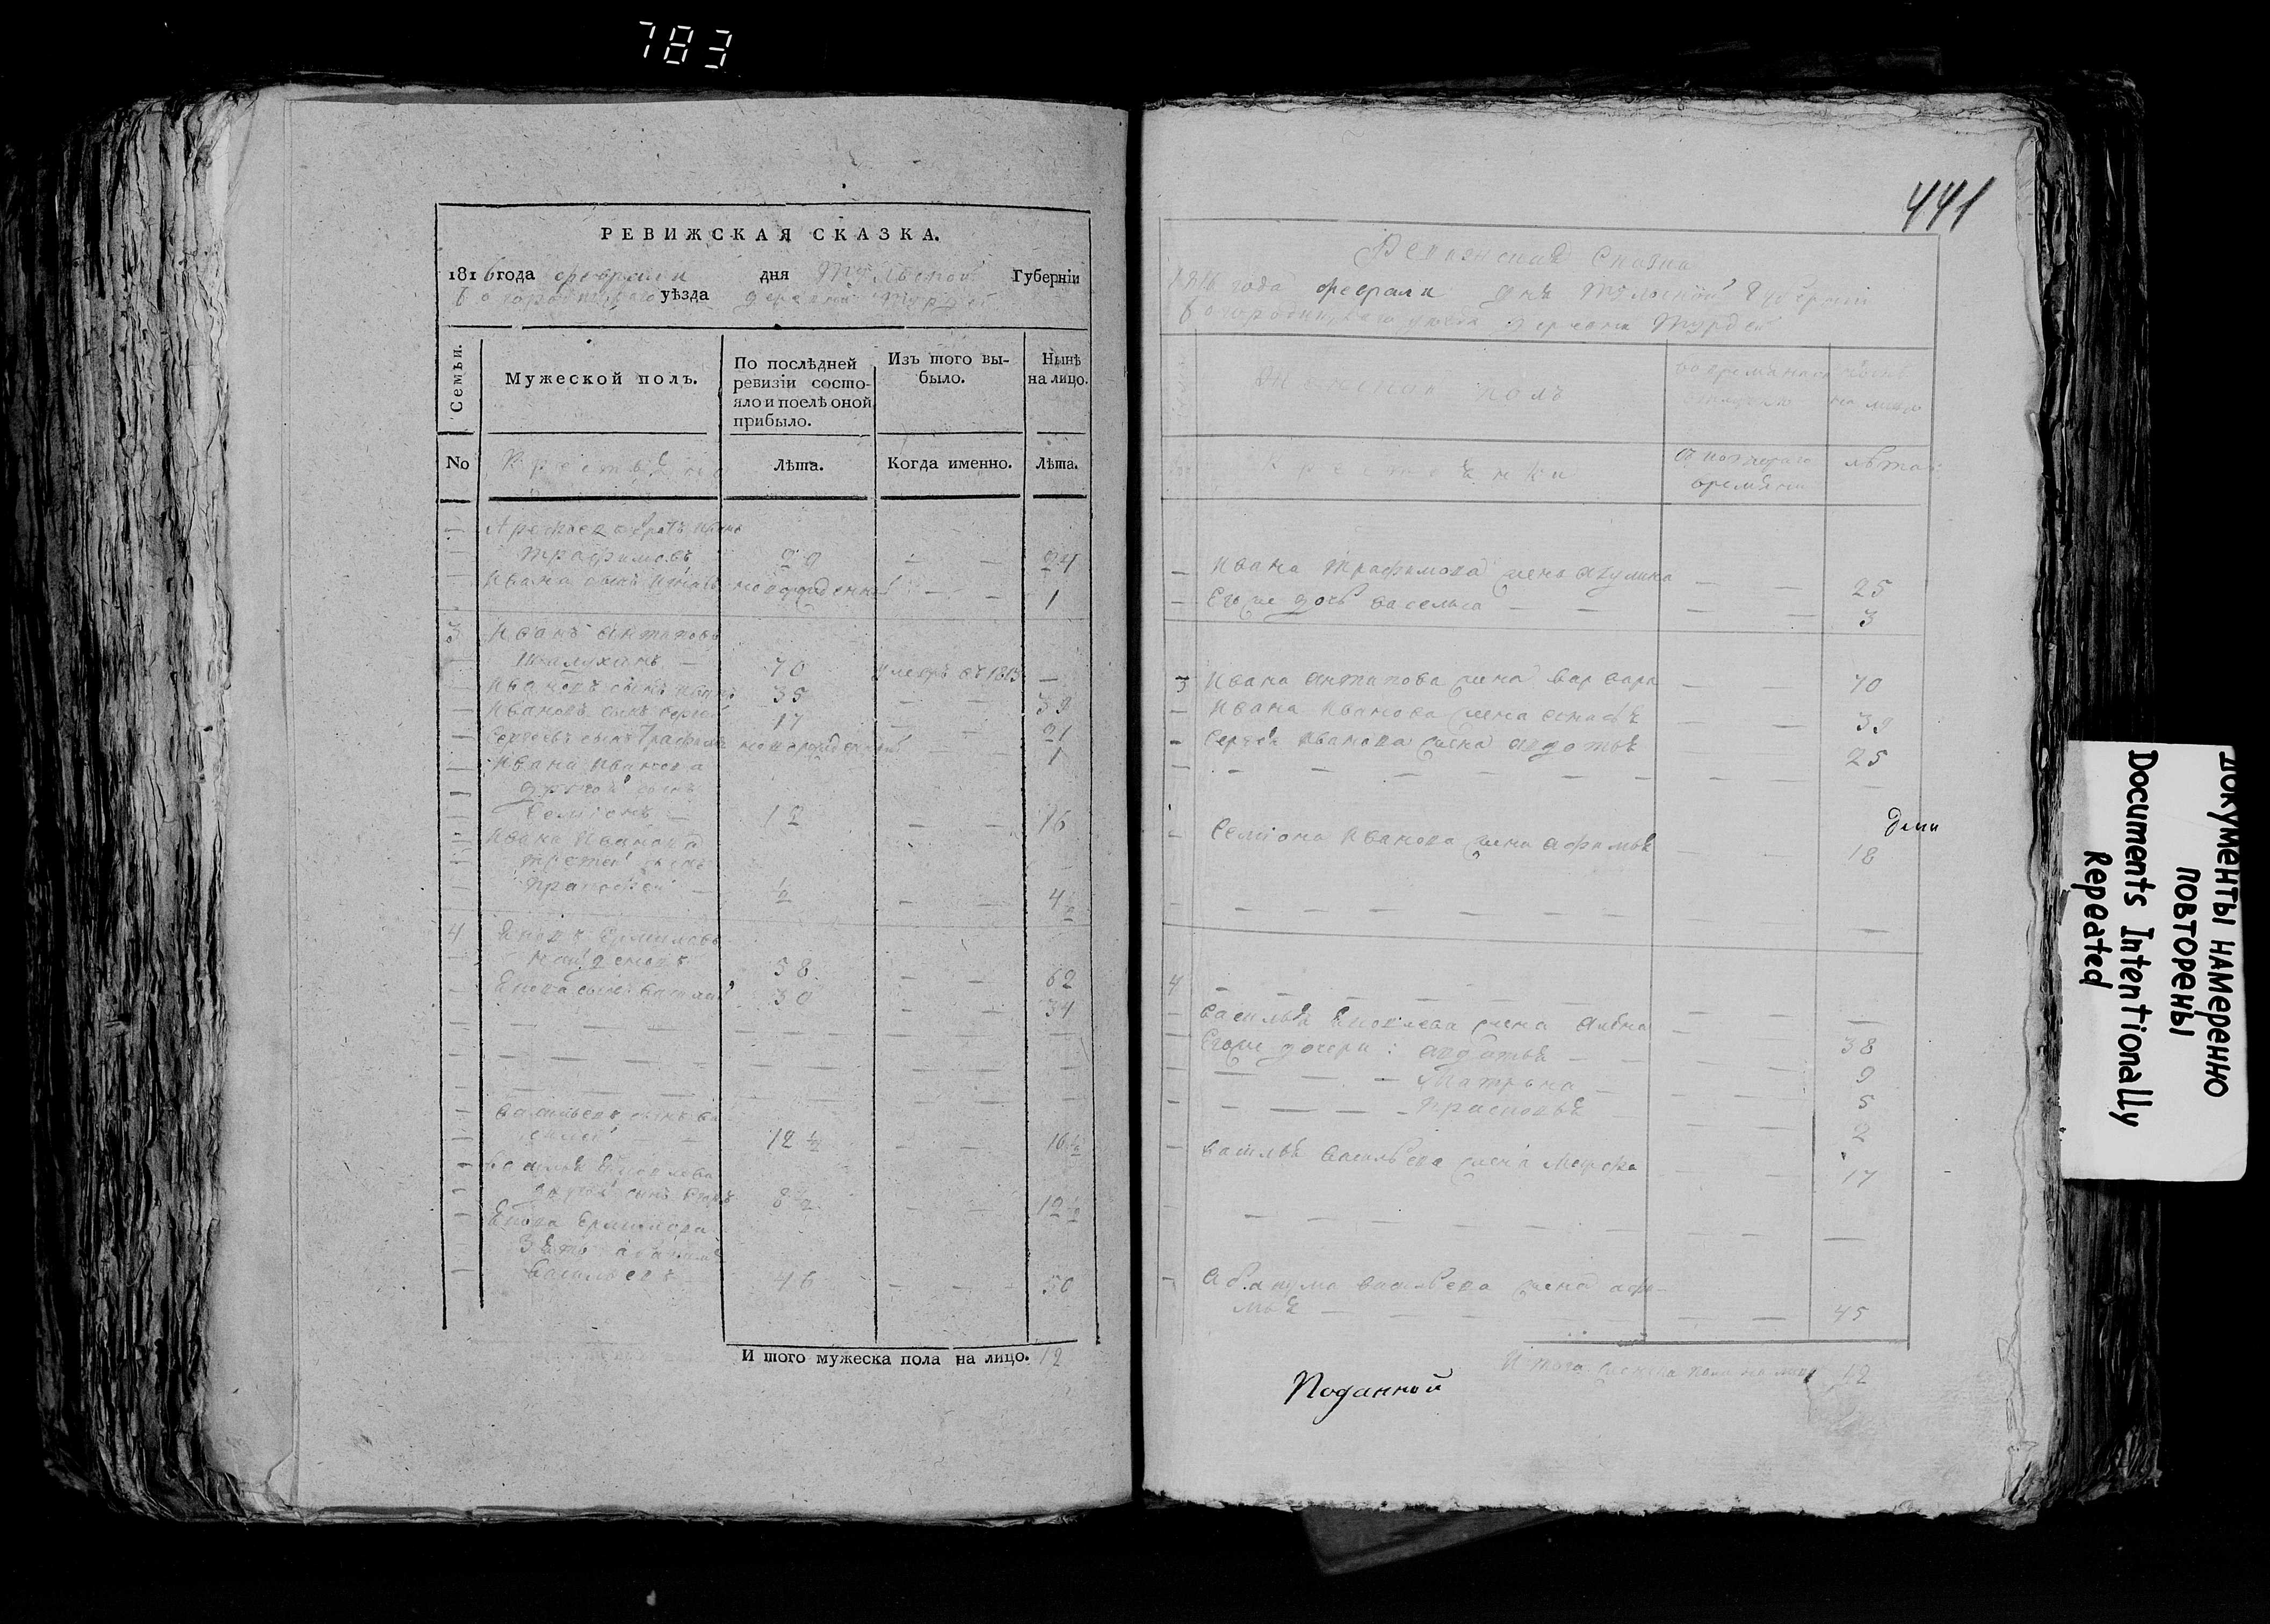 783
РЕВИЖСКАЯ СКАЗКА.
1816 года февраля дня Тульской Губерніи
Богородицкаго уѣзда деревни Турдей
Семьи.
Мужеской полъ.
По послѣдней ревизіи состо-
яло и послѣ оной прибыло.
Изъ того вы-
было.
Нынѣ
на лицо.
No
Крестьяне
Лѣта.
Когда именно.
Лѣта.
братъ Иванъ
Трафимовъ 20 — — 24
Ивана сынъ новорожденный — — 1
3 Иванъ Антиповъ
70 умеръ въ 1813 —
Ивановъ сынъ Иванъ 35 — — 39
Ивановъ сынъ Сергей 17 — — 21
Сергеевъ сынъ Трафимъ новорожденный — 1
Ивана Иванова
другой сынъ
Семіонъ — 12 — — 16
Ивана Иванова
третей сынъ
½ — — 4½
4 Яковъ Ермиловъ
58 — — 62
Якова сынъ Василий 30 — — 34
Васильевъ сынъ Ва
силей 12½ — — 16½
Василья Яковлева
другой сынъ 8½ — — 12½
Якова Ермилова
Зять Абакумъ
Васильевъ 46 — — 50
И того мужеска пола на лицо. 12
441
Ревизская Сказка
1816 года февраля дня Тульской Губерніи
Богородицкаго уезда деревни Турдей
Женской полъ
во временной отлучкѣ
нынѣ на лицо
Крестьянки
съ котораго
времяни
лѣта
— Ивана Трафимова жена Акулина — — 25
— Его же дочь Василиса — — — — 3
3 Ивана Антипова жена Варвара — — 70
— Ивана Иванова жена — — 39
— Сергея Иванова жена Авдотья — — 25
дени
— Семіона Иванова жена Афимья — — 18
4
— Василья Яковлева жена Анна — 38
Его же дочери: Авдотья — — 9
— — — Матрена — 5
— — — Прасковья — — 2
— Василья Васильева жена Марфа — — 17
— Абакума Васильева жена Афи-
мья — — — — 45
И того женска пола на лицо 12
Поданной
ДОКУМЕНТЫ НАМЕРЕННО
ПОВТОРЕНЫ
Documents Intentionally
Repeated